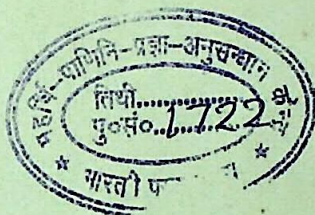 महर्षि-पाणिनि-प्रज्ञा-अनुसन्धान
तिथी..............
पु०सं०..1722
भारती